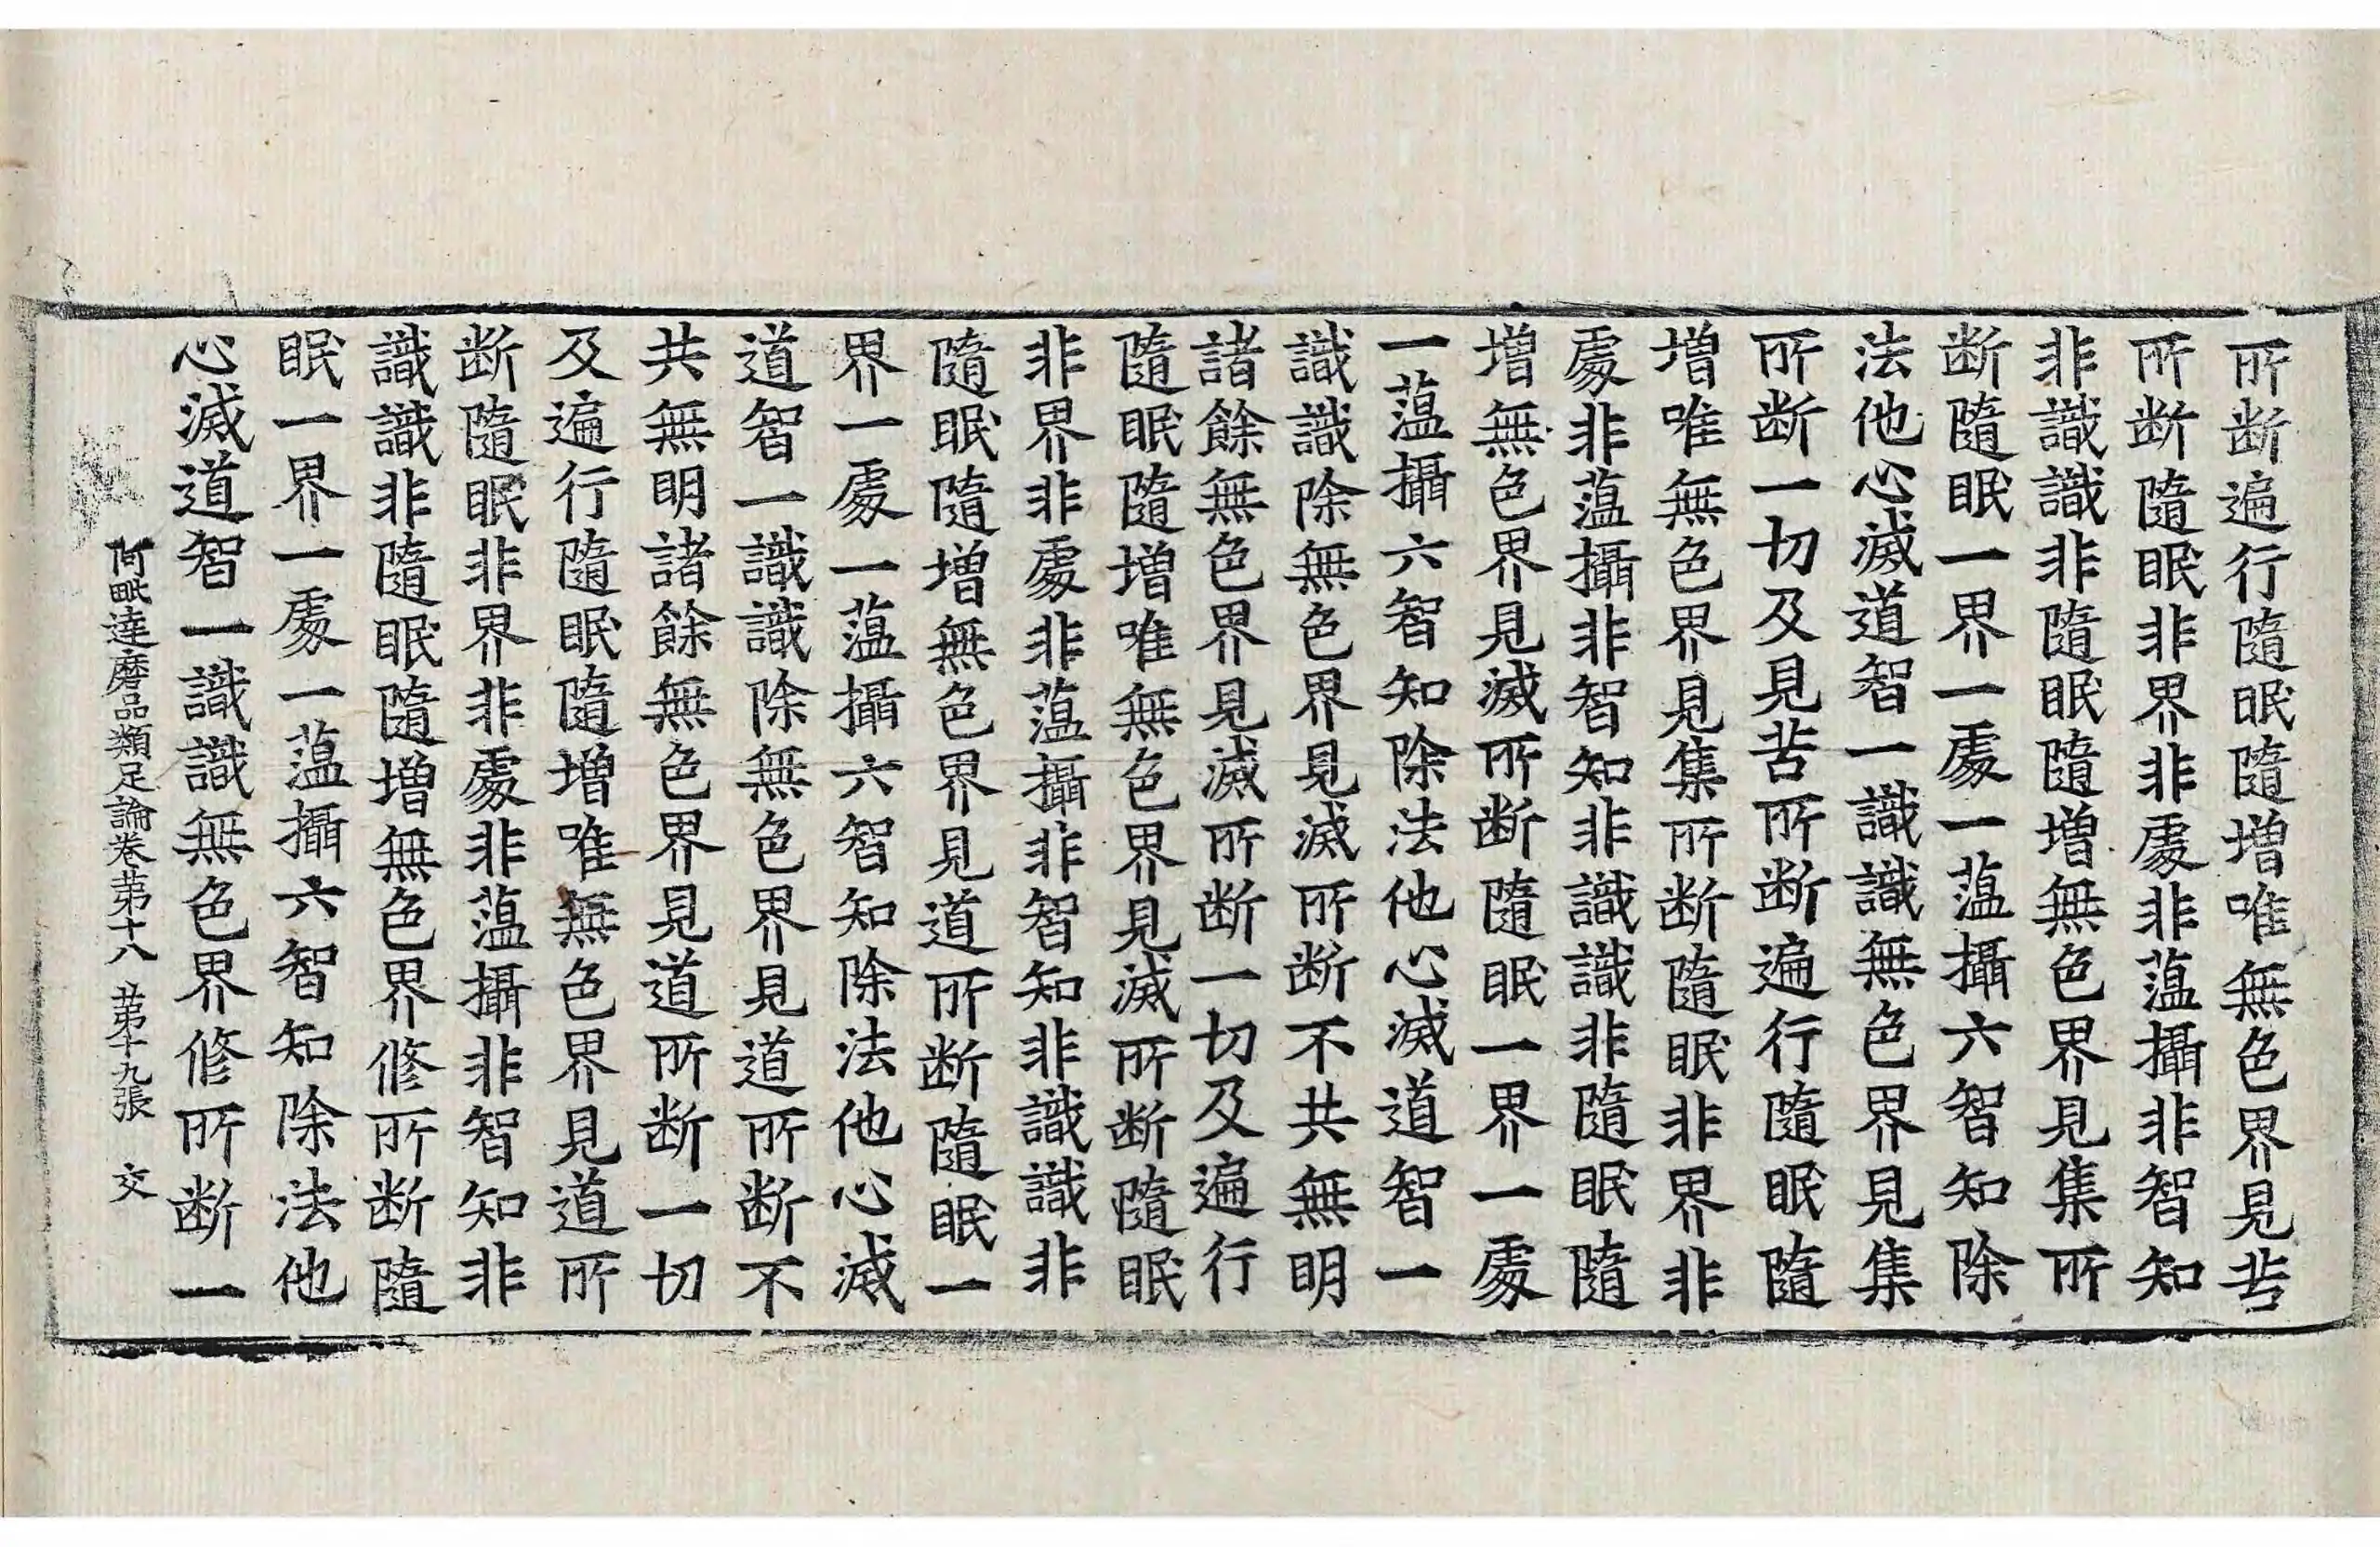 所断遍行隨眠隨增唯無色界見苦
所断隨眠非界非處非蕰攝非智知
非識識非隨眠隨增無色界見集所
断隨眠一界一處一蕰攝六智知除
法他心滅道智一識識無色界見集
所断一切及見苦所断遍行隨眠隨
增唯無色界見集所断隨眠非界非
處非蕰攝非智知非識識非隨眠隨
增無色界見滅所断隨眠一界一處
一蕰攝六智知除法他心滅道智一
識識除無色界見滅所断不共無明
諸餘無色界見滅所断一切及遍行
隨眠隨增唯無色界見滅所断隨眠
非界非處非蕰攝非智知非識識非
隨眠隨增無色界見道所断隨眠一
界一處一蕰攝六智知除法他心滅
道智一識識除無色界見道所断不
共無明諸餘無色界見道所断一切
及遍行隨眠隨增唯無色界見道所
断隨眠非界非處非蕰攝非智知非
識識非隨眠隨增無色界修所断隨
眠一界一處一蕰攝六智知除法他
心滅道智一識識無色界修所断一
阿毗達磨品類足論卷苐十八 苐十九張 交